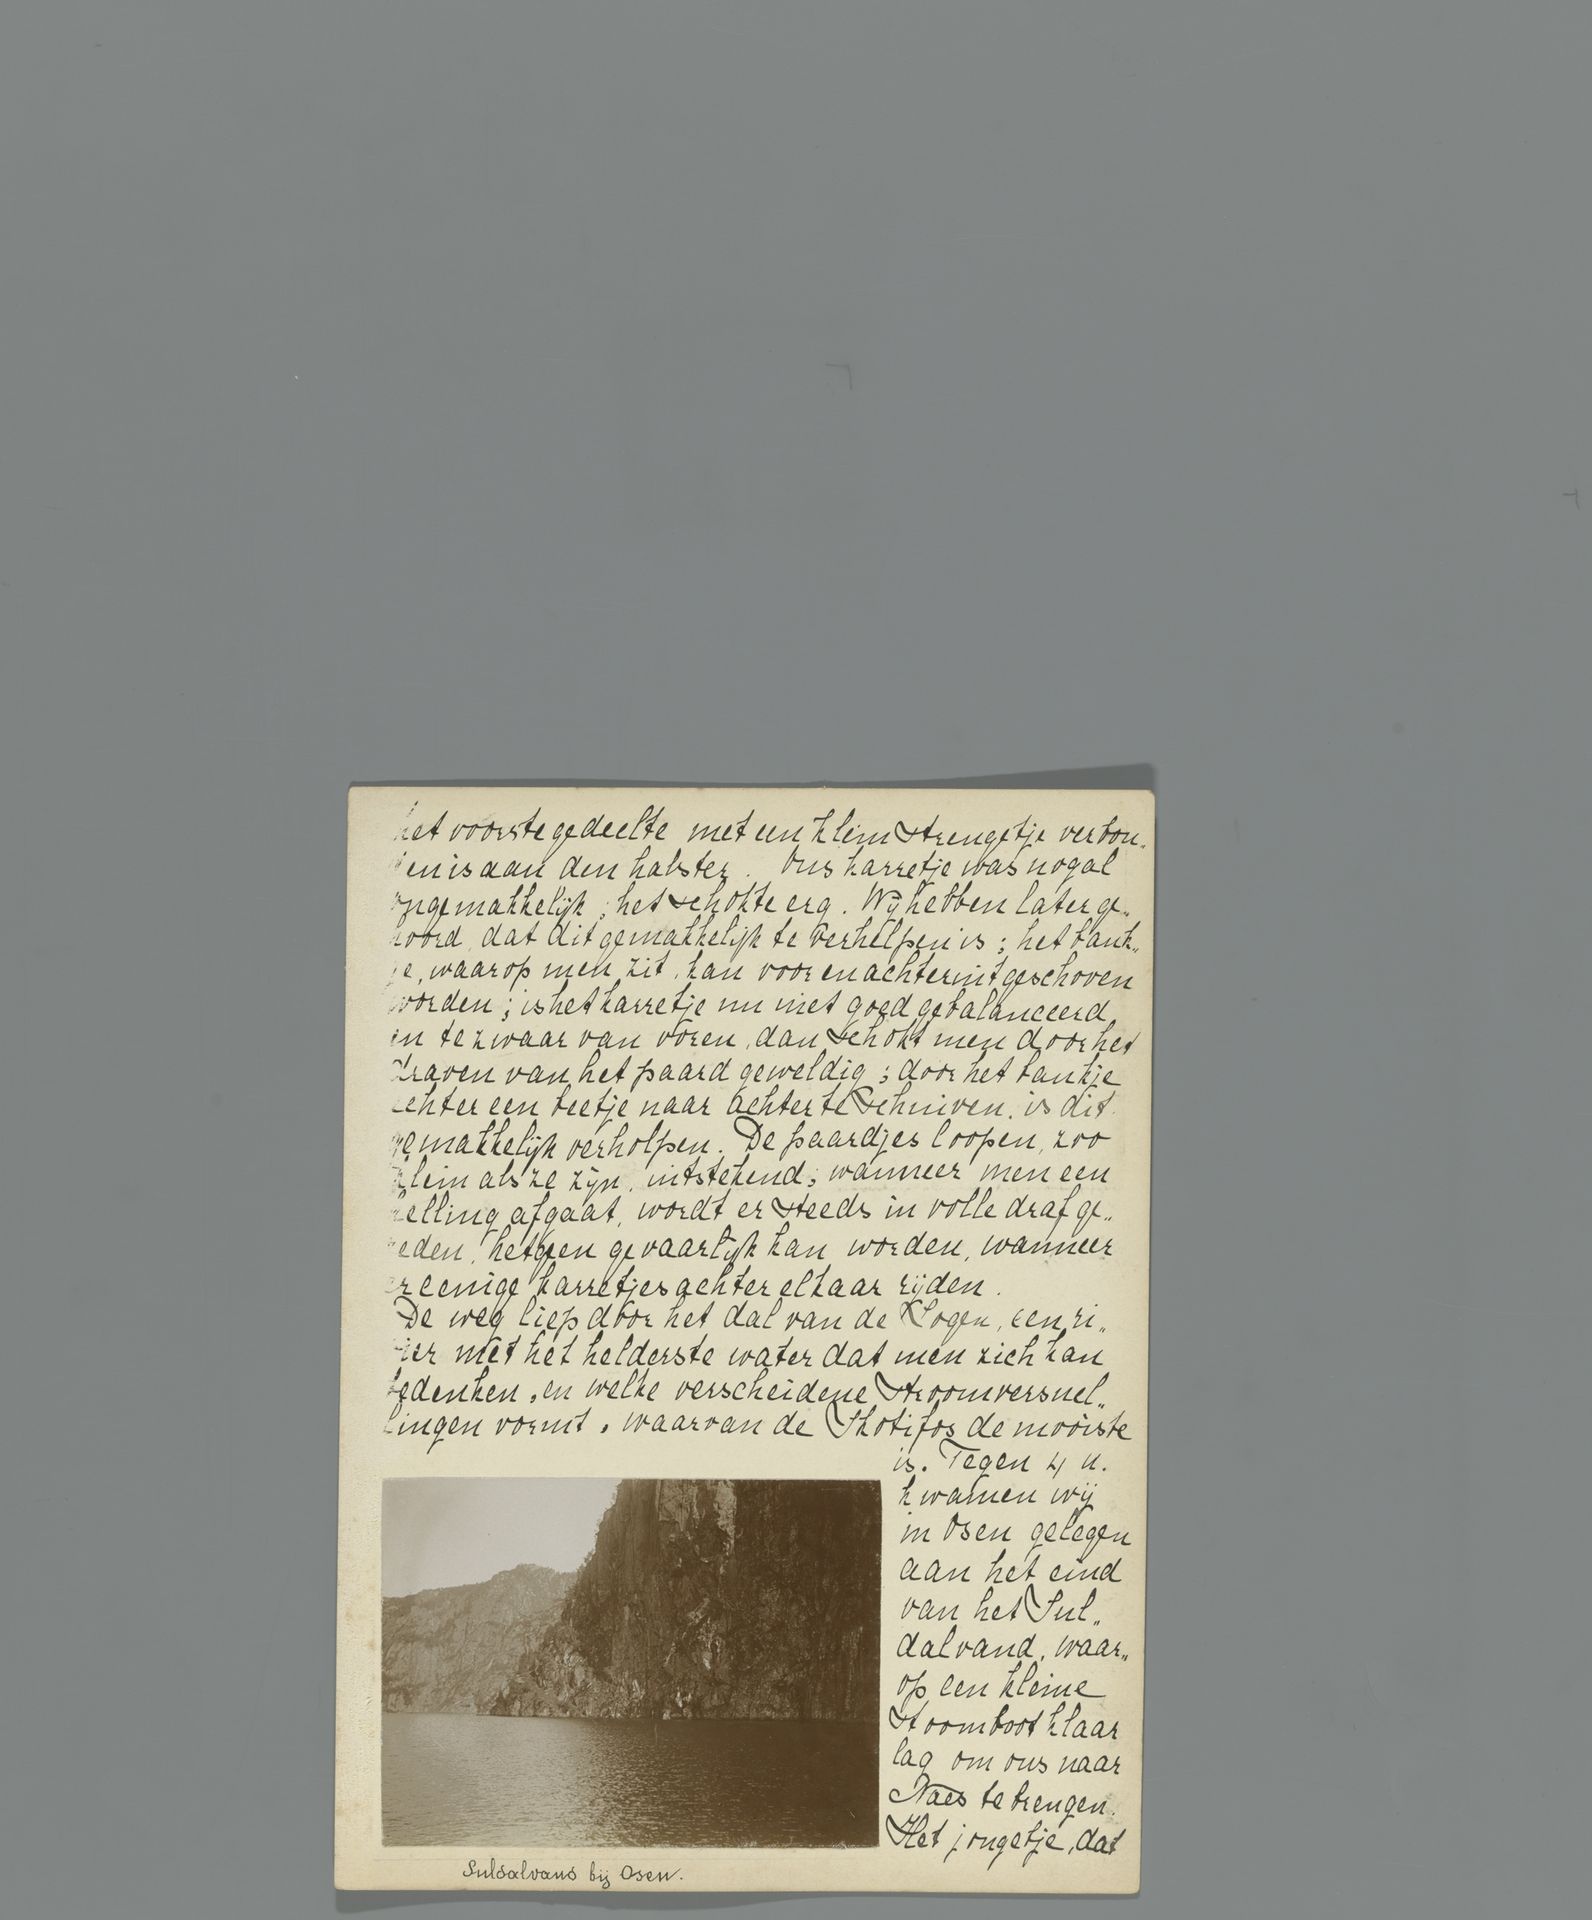 het voorste gedeelte met een klein strengetje verbon„
den is aan den halster. Ons karretje was nogal
ongemakkelijk; het schokte erg. Wij hebben later ge„
hoord, dat dit gemakkelijk te verhelpen is; het bank„
je, waarop men zit, kan voor en achteruit geschoven
worden; is het karretje nu niet goed gebalanceerd
en te zwaar van voren, dan schokt men door het
draven van het paard geweldig; door het bankje
echter een beetje naar achter te schuiven, is dit
gemakkelijk verholpen. De paardjes loopen, zoo
klein als ze zijn, uitstekend; wanneer men een
helling afgaat, wordt er steeds in volle draf ge„
reden, hetgeen gevaarlijk kan worden, wanneer
er eenige karretjes achter elkaar rijden.
De weg liep door het dal van de Logen, een ri„
vier met het helderste water dat men zich kan
bedenken, en welke verscheidene stroomversnel„
lingen vormt, waarvan de Skotifos de mooiste
is. Tegen 4 u.
kwamen wij
in Osen gelegen
aan het eind
van het Sul„
dalvand, waar„
op een kleine
stoomboot klaar
lag om ons naar
Naes te brengen.
Het jongetje, dat
Suldalvand bij Osen.